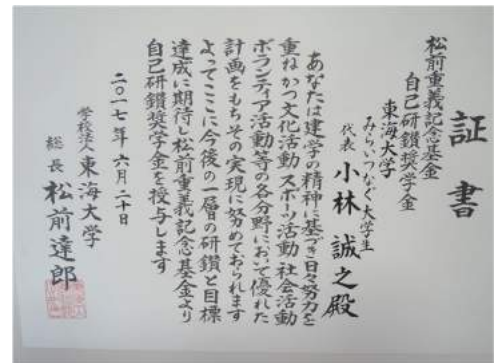 証書
松前重義記念基金
自己研鑽奨学金
東海大学
みらいつなぐ大学生
代表 小林 誠之殿
あなたは建学の精神に基づき日々努力を
重ねかつ文化活動スポーツ活動社会活動
ボランティア活動等の各分野において優れた
計画をもちその実現に努めておられます
よってここに今後の一層の研鑽と目標
達成に期待し松前重義記念基金より
自己研鑽奨学金を授与します
二〇一七年六月二十日
学校法人東海大学
総長 松前達郎